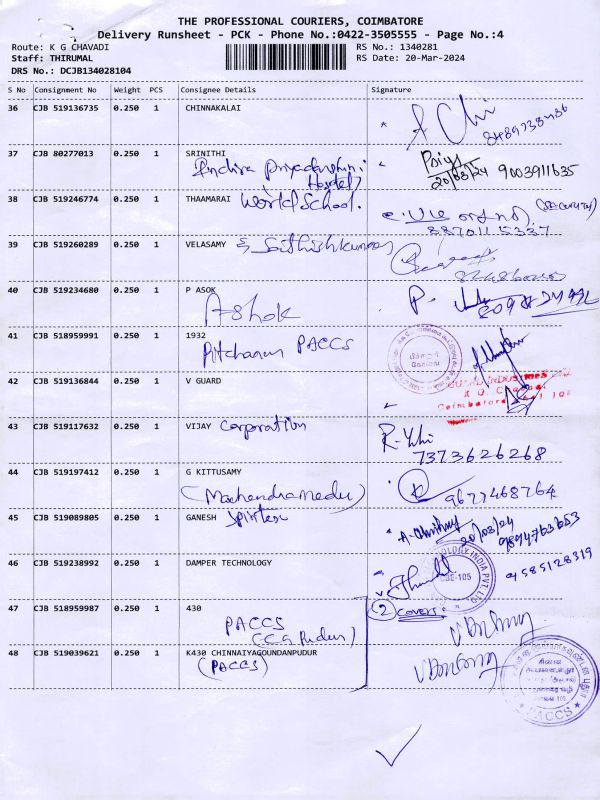 THE PROFESSIONAL COURIERS, COIMBATORE
Delivery Runsheet - PCK - Phone No.:0422-3505555 - Page No.:4
Route: K G CHAVADI
RS No.: 1340281
Staff: THIRUMAL
RS Date: 20-Mar-2024
DRS No.: DCJB134028104
S No Consignment No Weight PCS Consignee Details Signature
36 CJB 519136735 0.250 1 CHINNAKALAI
37 CJB 80277013 0.250 1 SRINITHI
Indira Priyadarshini
Hostel
20/03/24 9003911635
38 CJB 519246774 0.250 1 THAAMARAI World School.
8870115337
39 CJB 519260289 0.250 1 VELASAMY Sathishkumar
40 CJB 519234680 0.250 1 P ASOK
Ashok
41 CJB 518959991 0.250 1 1932
Pitchanur PACCS
42 CJB 519136844 0.250 1 V GUARD
43 CJB 519117632 0.250 1 VIJAY Corporation
7373626268
44 CJB 519197412 0.250 1 G KITTUSAMY
(Mahendramedu)
9677468764
45 CJB 519089805 0.250 1 GANESH
20/03/24
9894763653
46 CJB 519238992 0.250 1 DAMPER TECHNOLOGY
9585128319
47 CJB 518959987 0.250 1 430
PACCS
(C G Pudur)
2 covers
48 CJB 519039621 0.250 1 K430 CHINNAIYAGOUNDANPUDUR
(PACCS)
PACCS